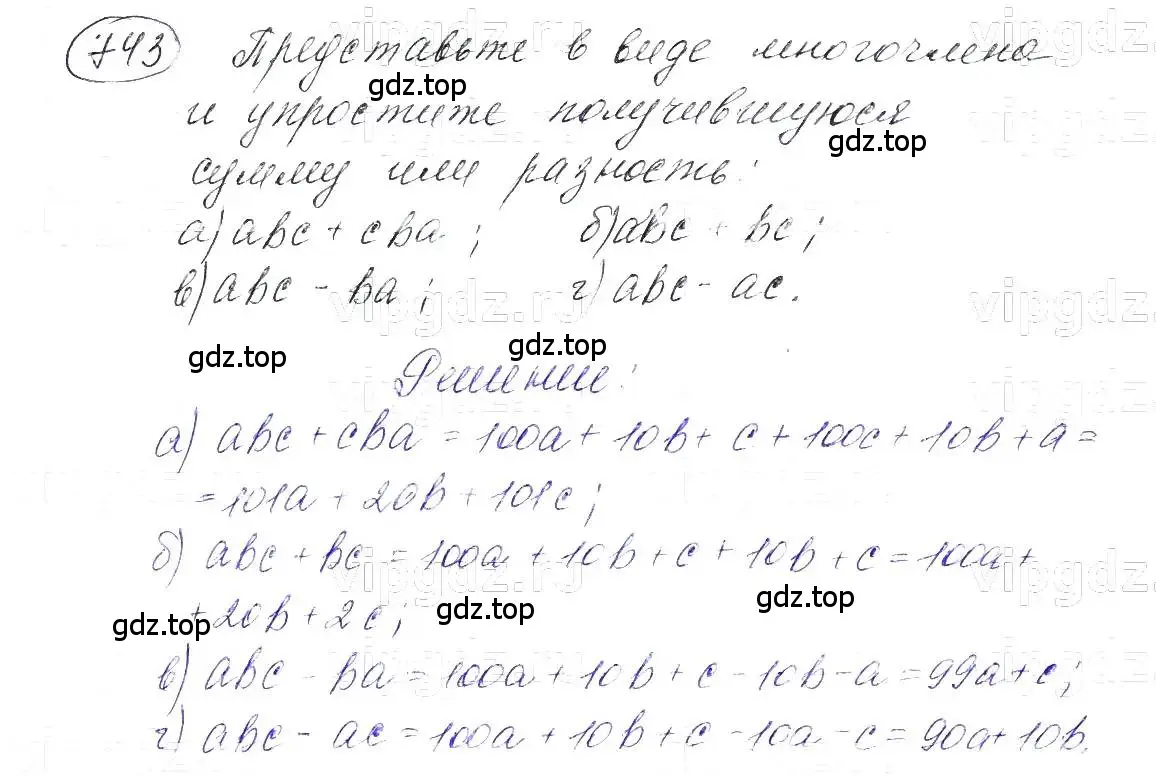 743 Представьте в виде многочлена
gdz.top
и упростите получившуюся
gdz.top
сумму или разность:
а) abc + cba; б) abc + bc;
в) abc - ba; г) abc - ac.
vipgdz.ru
gdz.top gdz.top
Решение:
а) abc + cba = 100a + 10b + c + 100c + 10b + a =
= 101a + 20b + 101c;
б) abc + bc = 100a + 10b + c + 10b + c = 100a +
+ 20b + 2c;
gdz.top gdz.top gdz.top
в) abc - ba = 100a + 10b + c - 10b - a = 99a + c;
г) abc - ac = 100a + 10b + c - 10a - c = 90a + 10b.